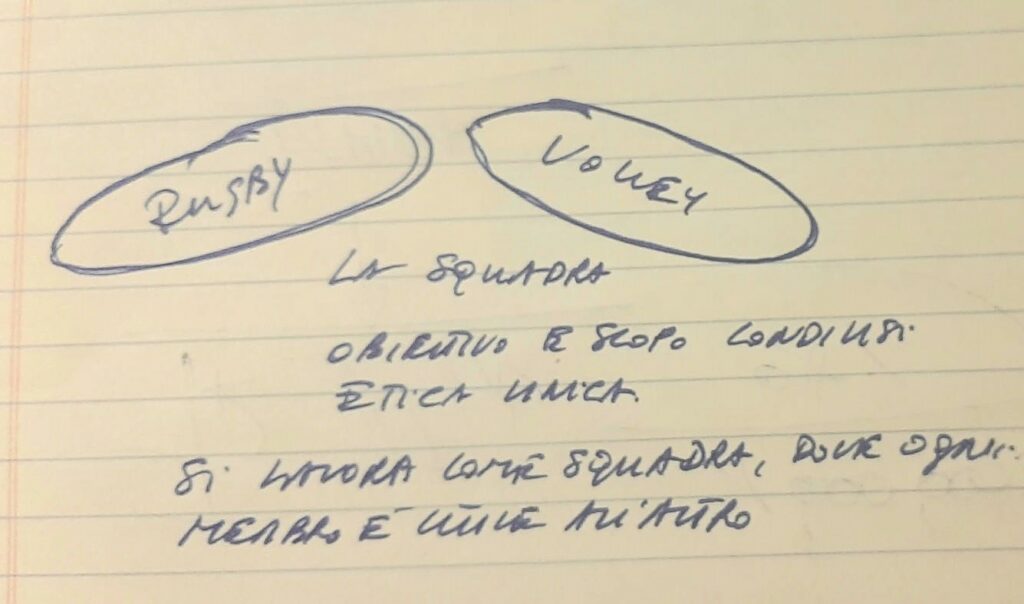 RUGBY
VOLLEY
LA SQUADRA
OBIETTIVO E SCOPO CONDIVISI
ETICA UNICA.
Si LAVORA COME SQUADRA, DOVE OGNI
MEMBRO È UTILE ALL'ALTRO